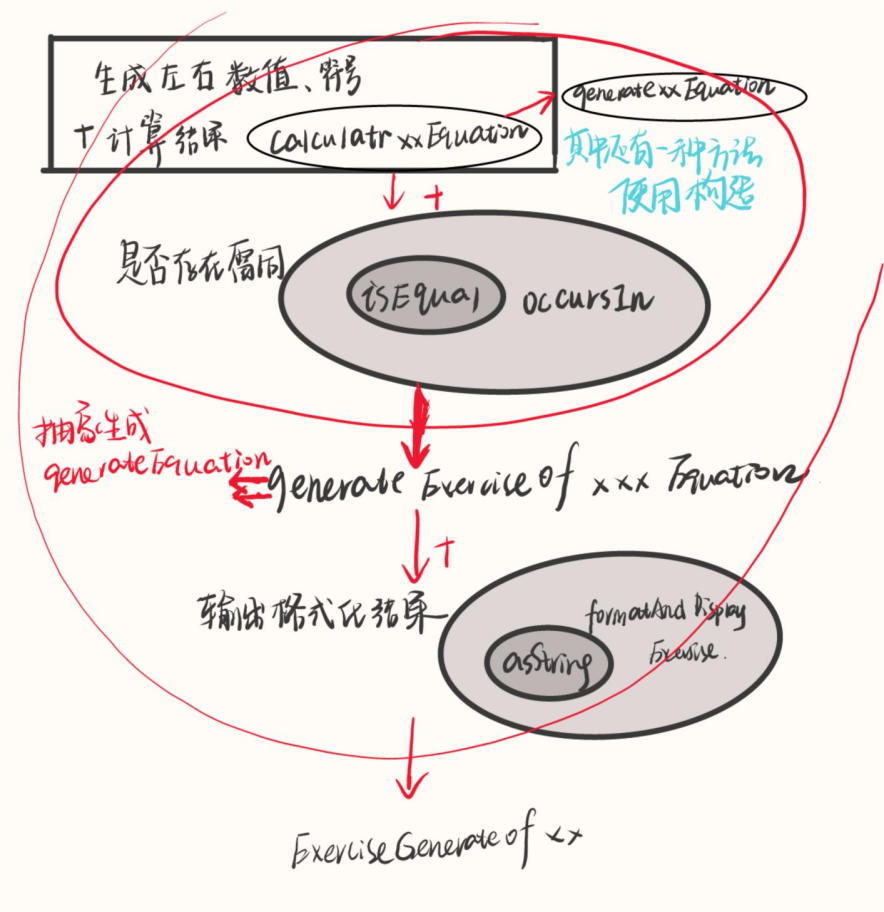 生成左右数值、符号
+计算结果 calculatr xx Equation
generate xx Equation
其中还有一种方法
使用构造
+
是否存在雷同
isEqual occursIn
抽离生成
generateEquation
generate Exercise of xxx Equation
+
输出格式化结果
formatAnd Display
Exersise.
asString
ExerciseGenerate of xx